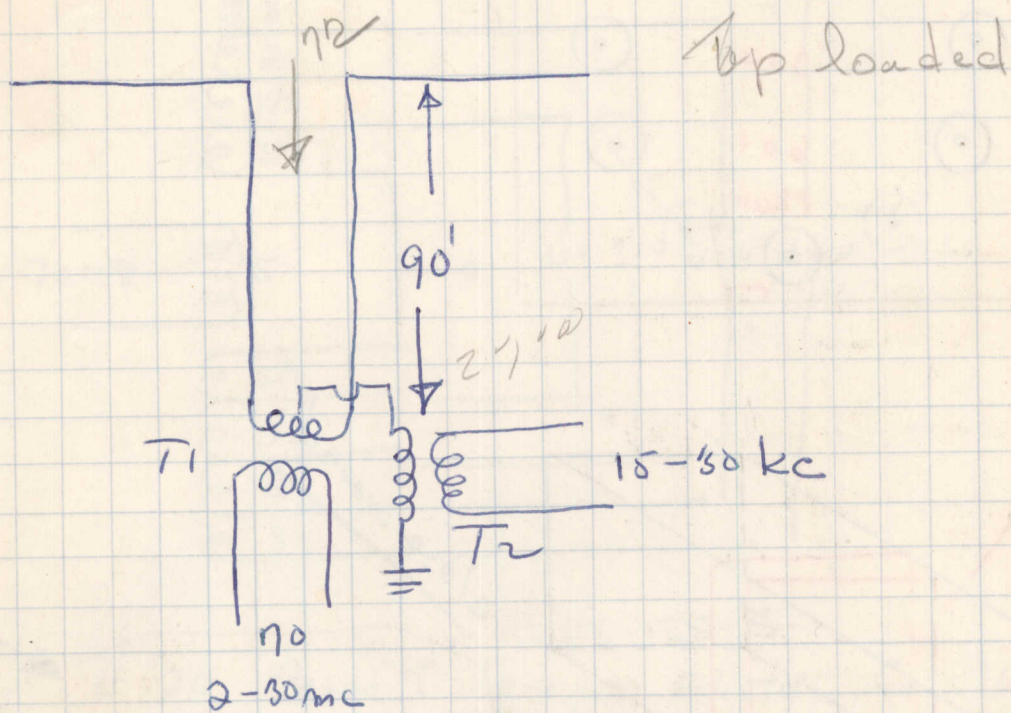 72
Top loaded
90'
T1
15-30 kc
T2
70
2-30 mc